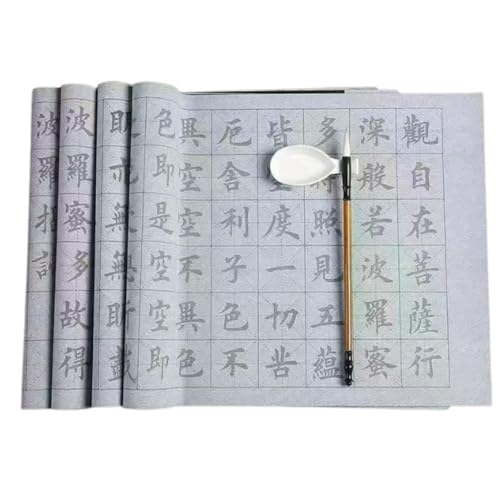 觀自在菩薩行
深般若波羅蜜
多照見五蘊
皆度一切苦
厄舍利子色不
異空空不異色
色即是空空即
眀亦無無眀盡
波羅蜜多故得
波羅